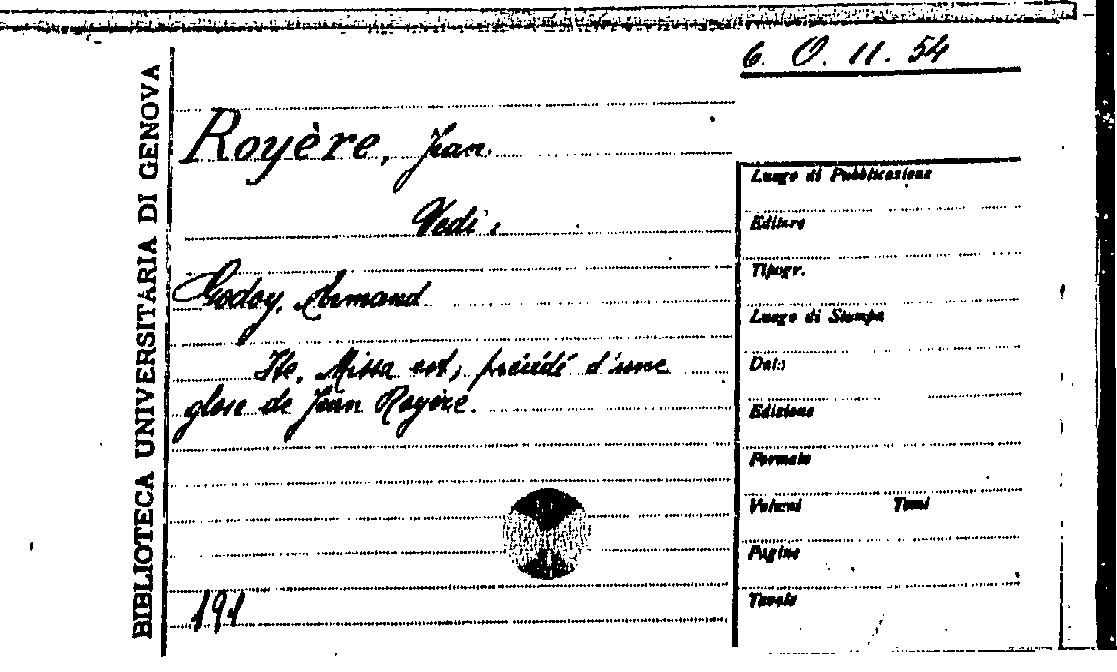 6. O. 11. 54
BIBLIOTECA UNIVERSITARIA DI GENOVA
Royère, Jean.
Vedi:
Godoy, Armand
Ite, Missa est, précédé d'une
glose de Jean Royère.
191
Luogo di Pubblicazione
Editore
Tipogr.
Luogo di Stampa
Data
Edizione
Formato
Volumi Tomi
Pagine
Tavole